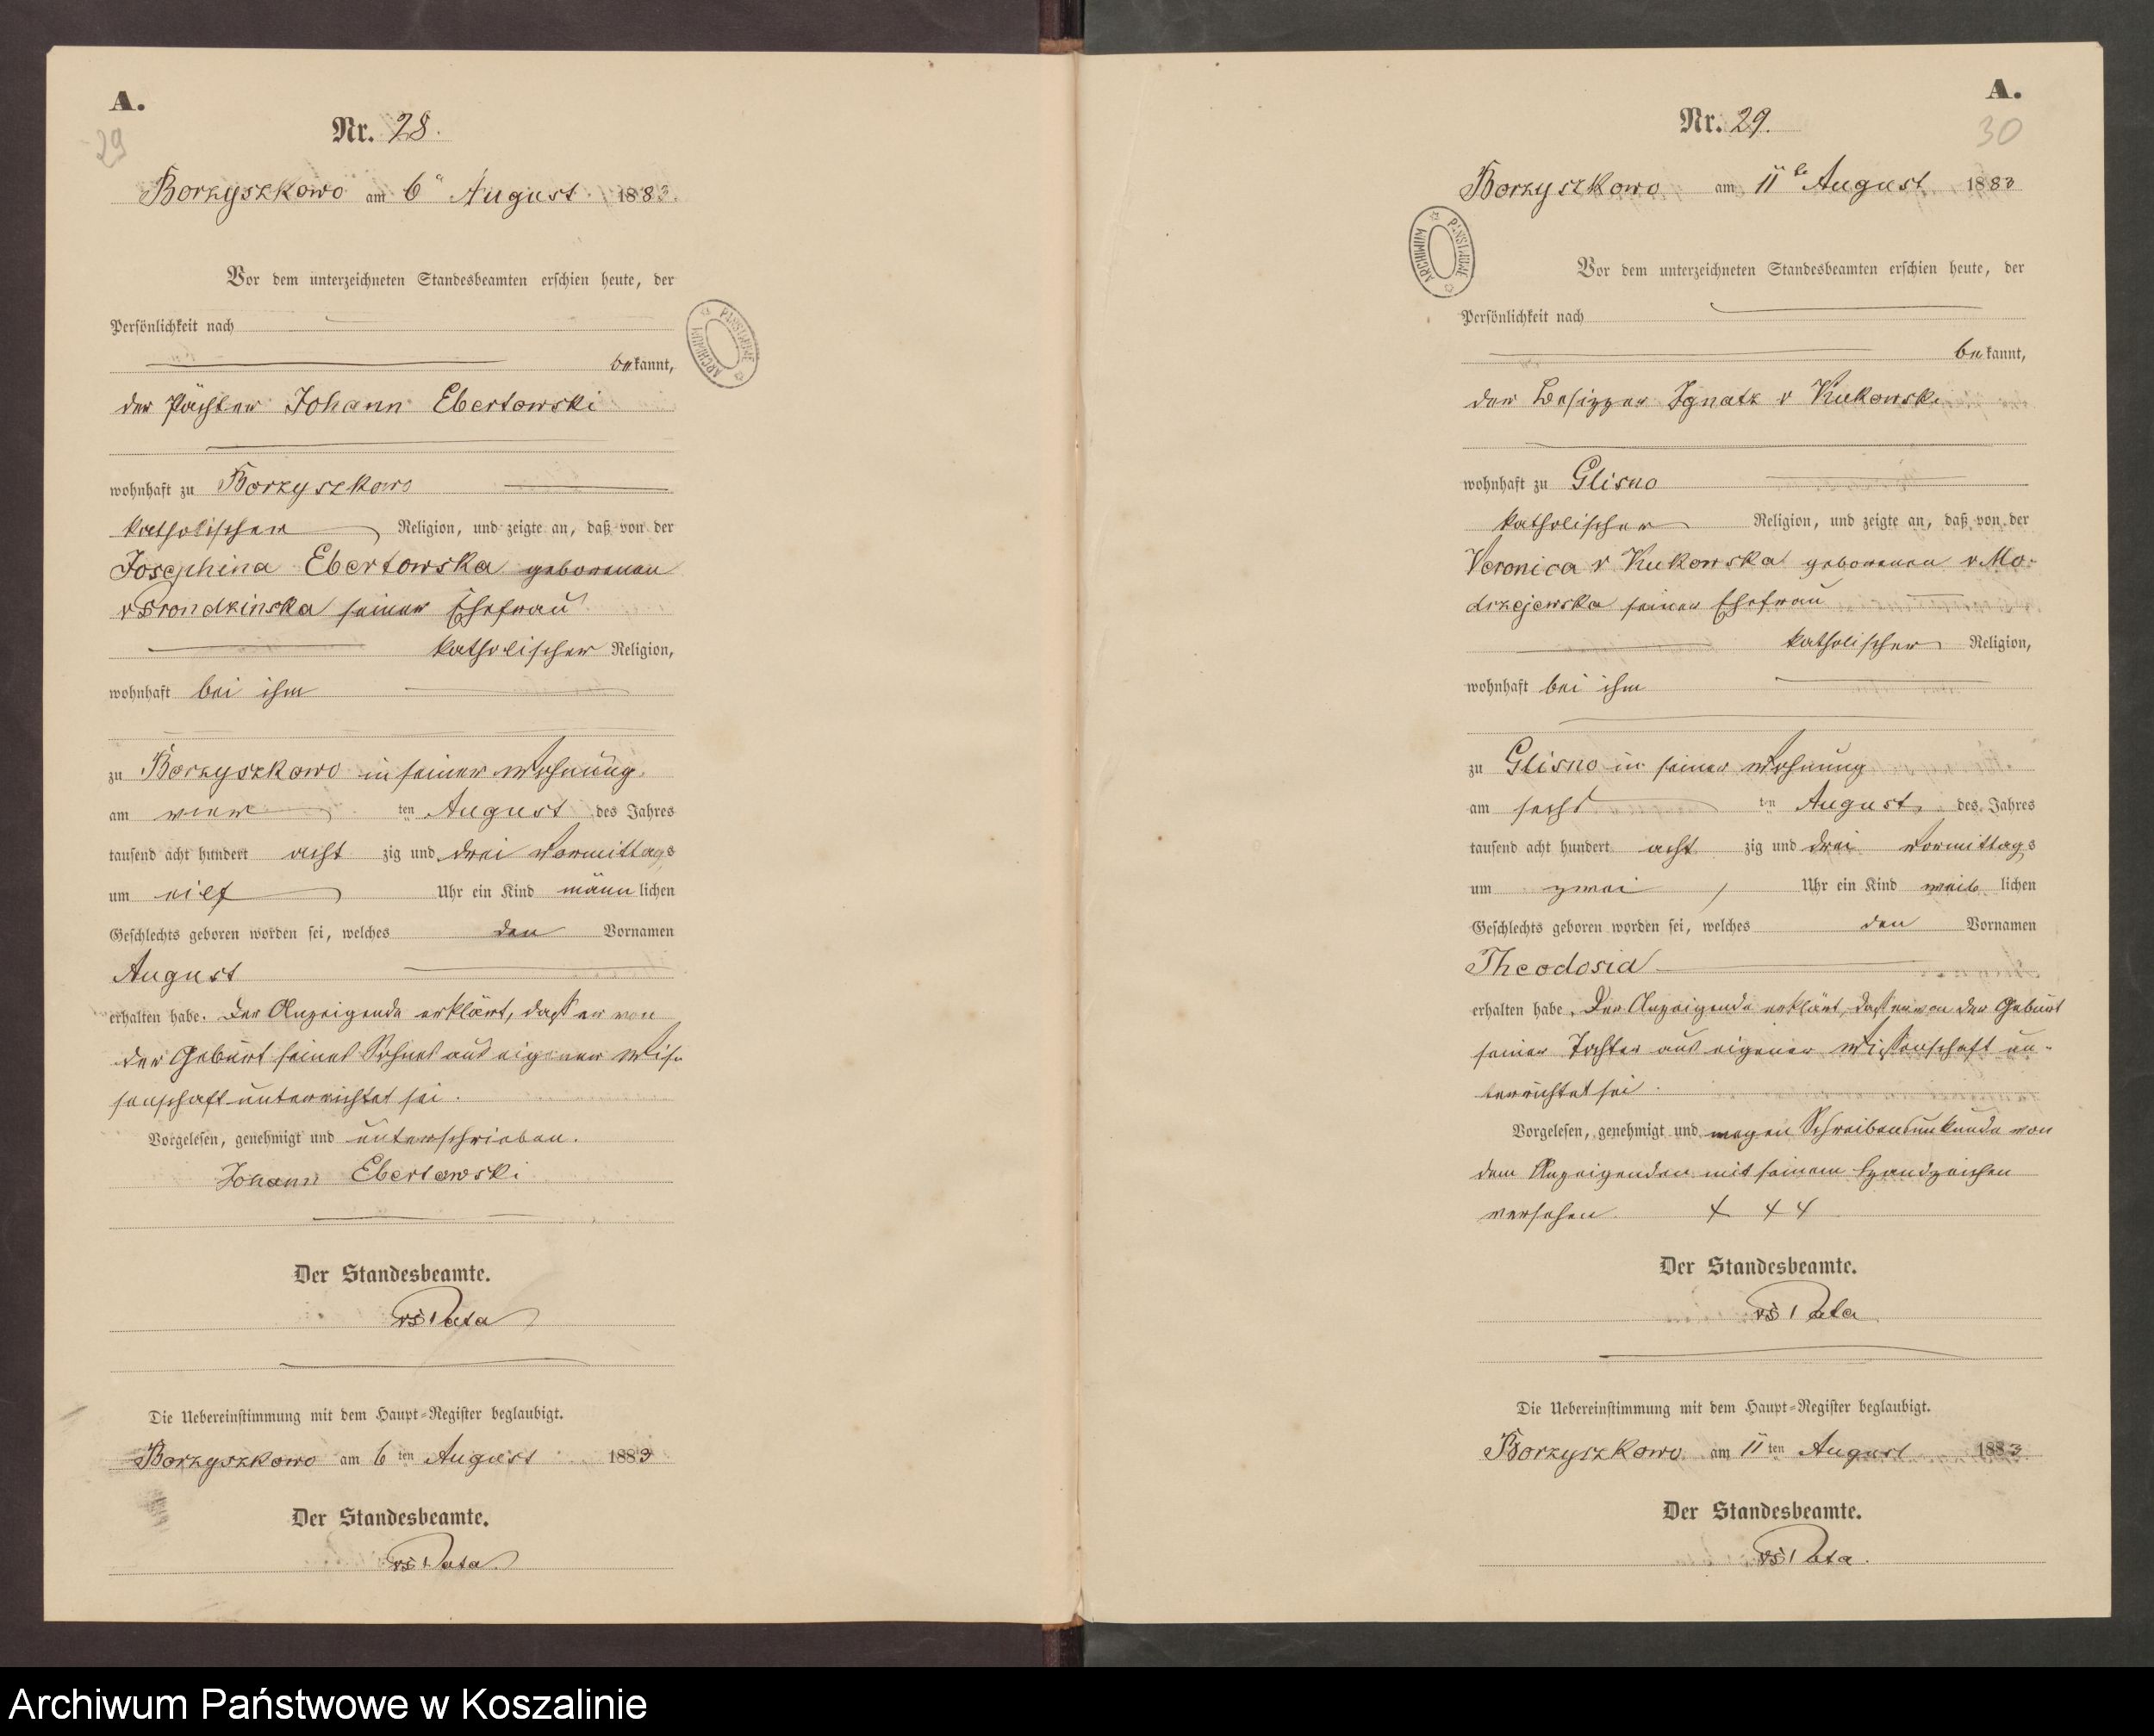 A.
29
Nr. 28.
Borzyszkowo am 6 August 1883.
Vor dem unterzeichneten Standesbeamten erschien heute, der
Persönlichkeit nach
bekannt,
der Pächter Johann Ebertowski
wohnhaft zu Borzyszkowo
katholischer Religion, und zeigte an, daß von der
Josephina Ebertowska geborenen
seiner Ehefrau
katholischer Religion,
wohnhaft bei ihm
zu Borzyszkowo in seiner Wohnung
am vier ten August des Jahres
tausend acht hundert acht zig und drei Vormittags
um eilf Uhr ein Kind männlichen
Geschlechts geboren worden sei, welches den Vornamen
August
erhalten habe. Der Anzeigende erklärt, daß er von
der Geburt seines Sohnes aus eigener Wis
senschaft unterrichtet sei.
Vorgelesen, genehmigt und unterschrieben.
Johann Ebertowski
Der Standesbeamte.
Die Uebereinstimmung mit dem Haupt-Register beglaubigt.
Borzyszkowo am 6 ten August 1883
Der Standesbeamte.
A.
30
Nr. 29.
Borzyszkowo am 11 August 1883
ARCHIWUM PAŃSTWOWE
Vor dem unterzeichneten Standesbeamten erschien heute, der
Persönlichkeit nach
bekannt,
der Besitzer Ignatz v Kukowski
wohnhaft zu Glisno
katholischer Religion, und zeigte an, daß von der
Veronica v Kukowska geborenen v Mo-
drzejewska seiner Ehefrau
katholischer Religion,
wohnhaft bei ihm
zu Glisno in seiner Wohnung
am sechs ten August des Jahres
tausend acht hundert acht zig und drei Vormittags
um zwei Uhr ein Kind weiblichen
Geschlechts geboren worden sei, welches den Vornamen
Theodosia
erhalten habe. Der Anzeigende erklärt, daß er von der Geburt
seiner Tochter aus eigener Wissenschaft un-
terrichtet sei.
Vorgelesen, genehmigt und wegen Schreibensunkunde von
dem Anzeigenden mit seinem Handzeichen
versehen. + + +
Der Standesbeamte.
Die Uebereinstimmung mit dem Haupt-Register beglaubigt.
Borzyszkowo am 11 ten August 1883
Der Standesbeamte.
Archiwum Państwowe w Koszalinie